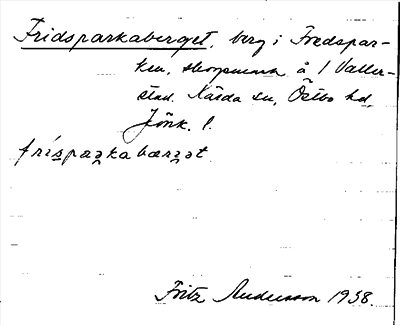 Fridsparkaberget, berg i Fredspar-
ken, skogsmark å 1 Valler-
stad. Kärda sn, Östbo hd,
Jönk. l.
Fritz Andersson 1938.